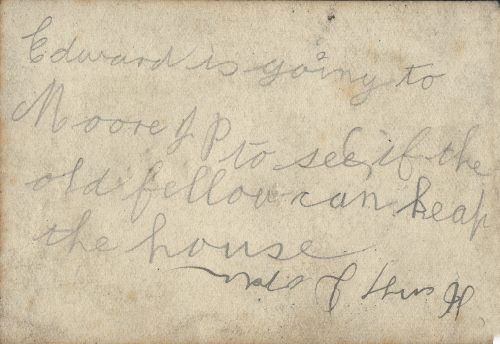 Edward is going to
Moore J P to see if the
old fellow can keap
the house